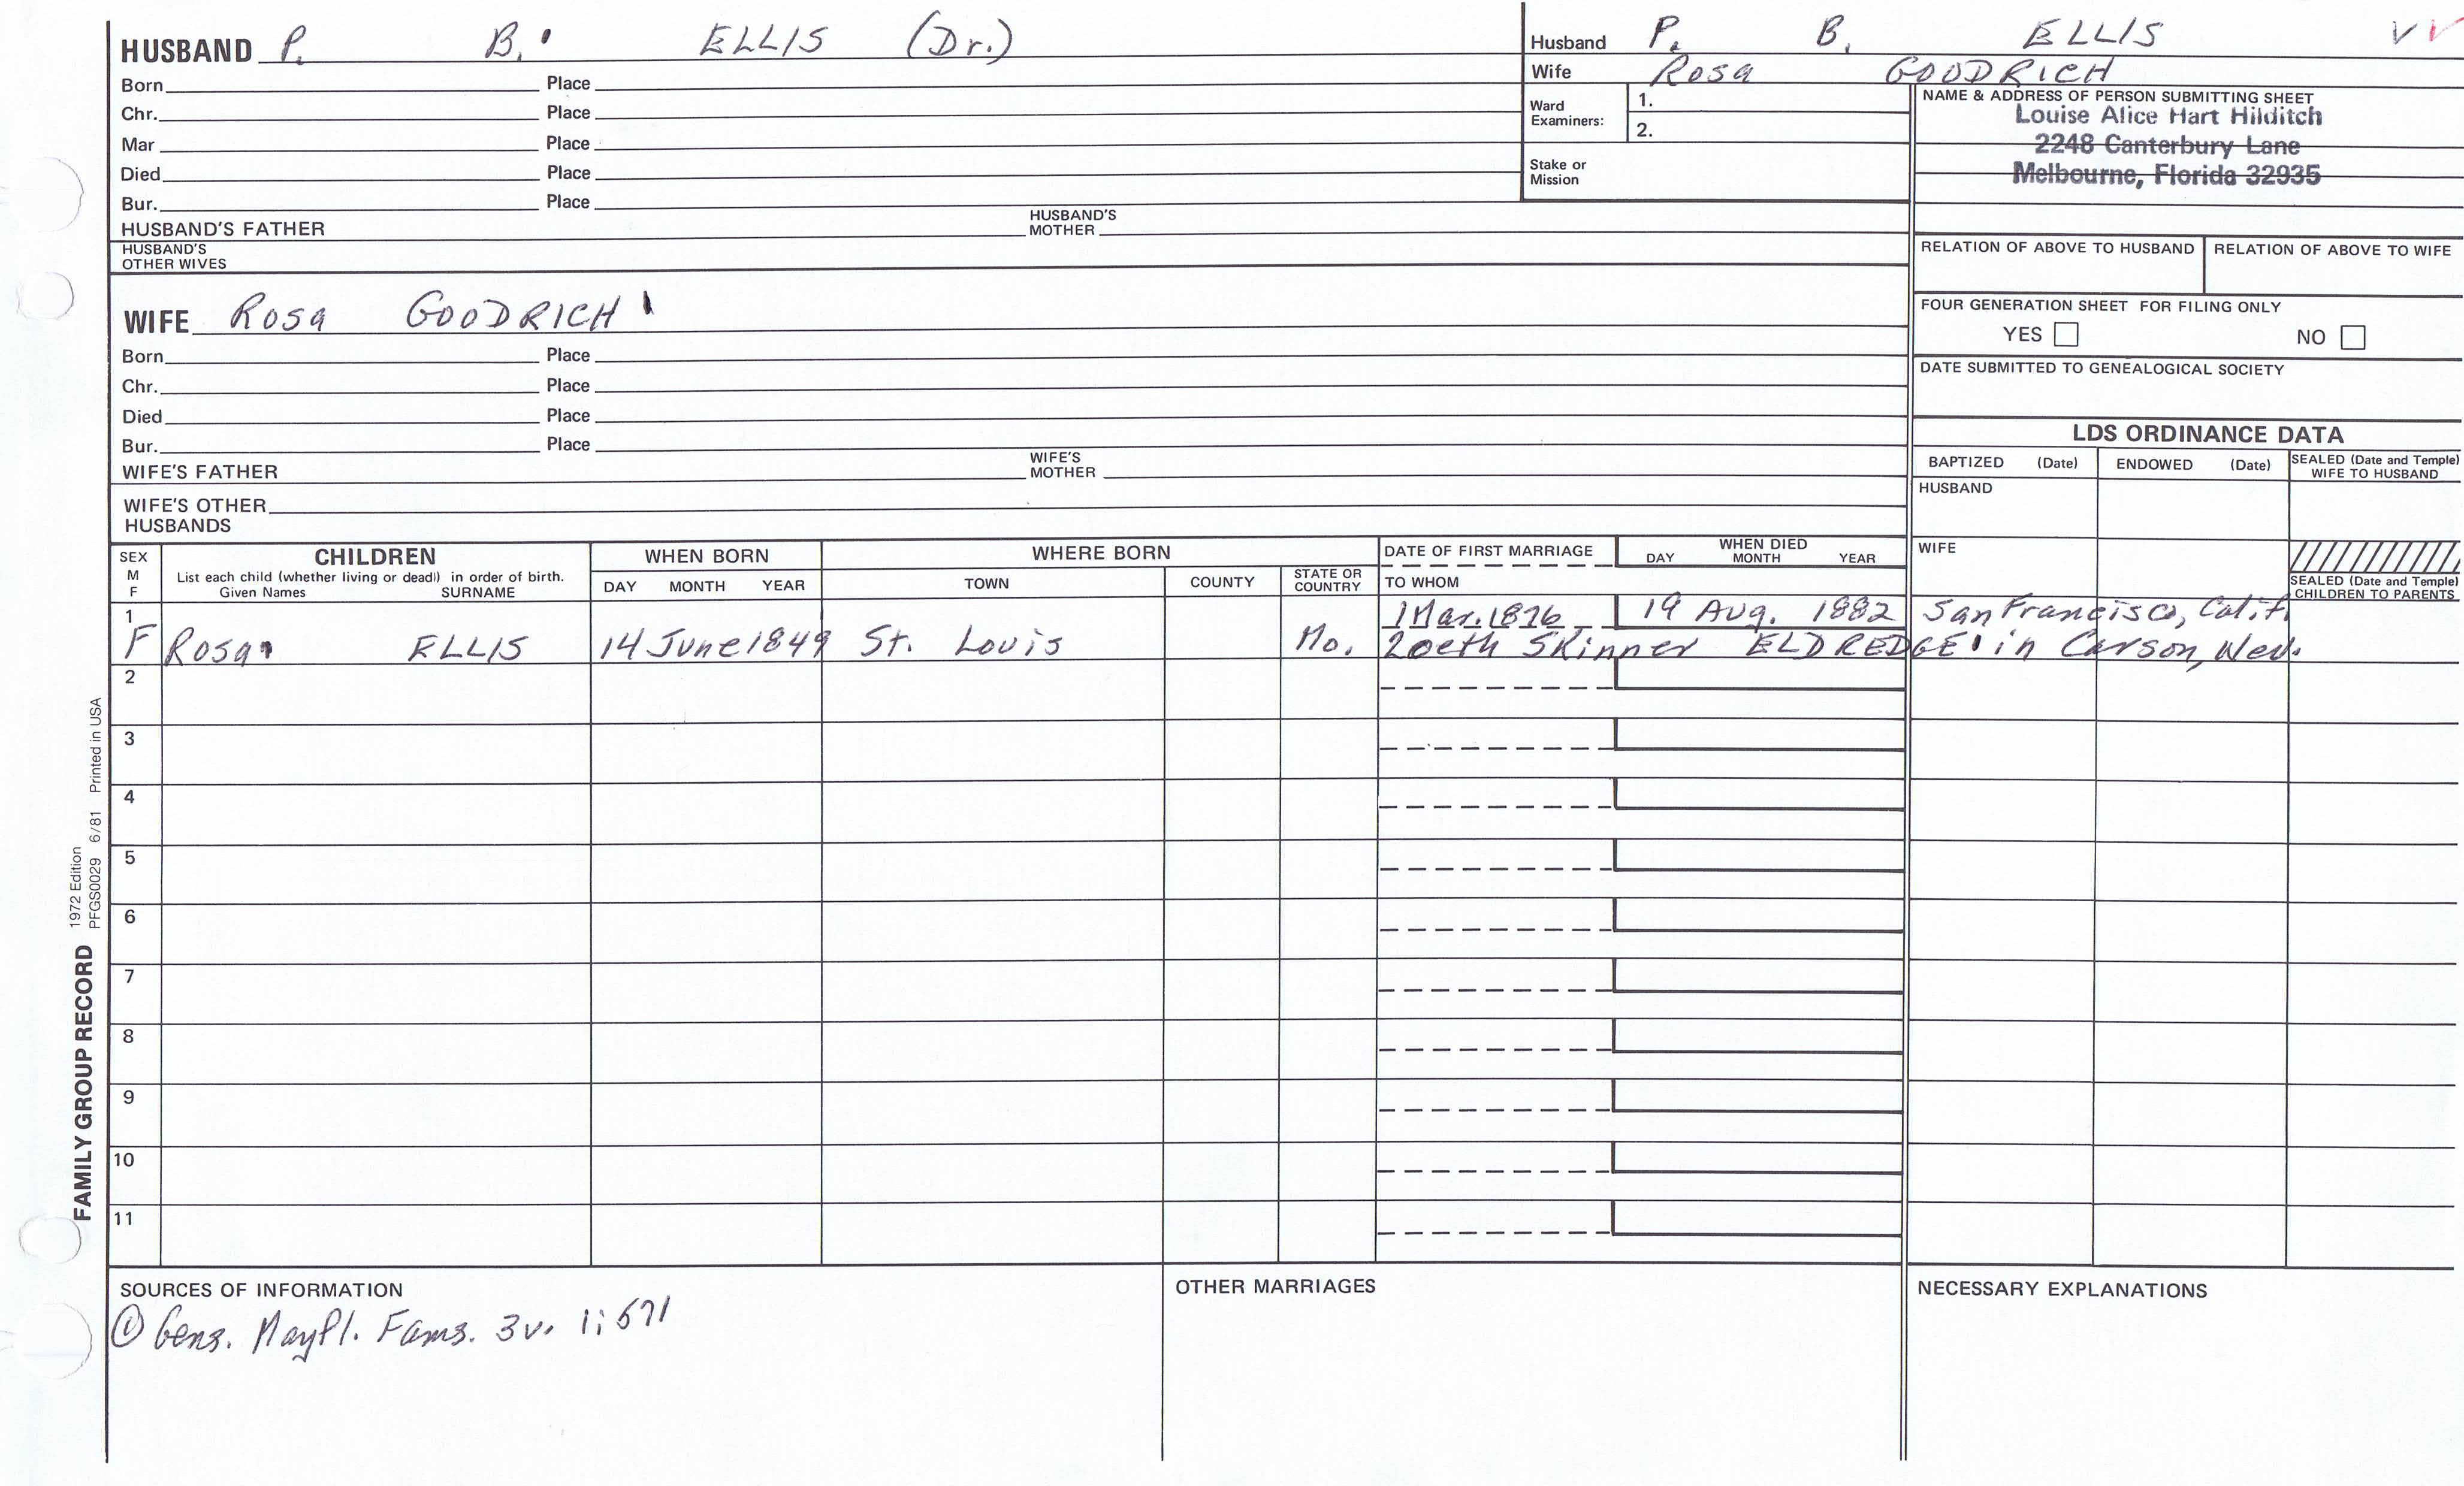 HUSBAND P. B.' ELLIS (Dr.)
Born Place
Chr. Place
Mar Place
Died Place
Bur. Place
HUSBAND'S FATHER HUSBAND'S MOTHER
HUSBAND'S OTHER WIVES
Husband P. B. ELLIS
Wife Rosa GOODRICH
Ward Examiners: 1.
2.
Stake or Mission
NAME & ADDRESS OF PERSON SUBMITTING SHEET
Louise Alice Hart Hilditch
2248 Canterbury Lane
Melbourne, Florida 32935
RELATION OF ABOVE TO HUSBAND RELATION OF ABOVE TO WIFE
FOUR GENERATION SHEET FOR FILING ONLY
YES NO
DATE SUBMITTED TO GENEALOGICAL SOCIETY
WIFE Rosa GOODRICH'
Born Place
Chr. Place
Died Place
Bur. Place
WIFE'S FATHER WIFE'S MOTHER
WIFE'S OTHER HUSBANDS
LDS ORDINANCE DATA
BAPTIZED (Date) ENDOWED (Date) SEALED (Date and Temple) WIFE TO HUSBAND
HUSBAND
WIFE
SEALED (Date and Temple) CHILDREN TO PARENTS
SEX M F CHILDREN WHEN BORN WHERE BORN DATE OF FIRST MARRIAGE WHEN DIED
List each child (whether living or dead) in order of birth.
Given Names SURNAME DAY MONTH YEAR TOWN COUNTY STATE OR COUNTRY TO WHOM DAY MONTH YEAR
1 1 Mar. 1876 19 Aug. 1882 San Francisco, Calif.
F Rosa' ELLIS 14 June 1849 St. Louis Mo. Zoeth Skinner ELDREDGE' in Carson, Nev.
2
3
4
5
6
7
8
9
10
11
SOURCES OF INFORMATION
① Gens. Mayfl. Fams. 3v. 1:571
OTHER MARRIAGES
NECESSARY EXPLANATIONS
FAMILY GROUP RECORD 1972 Edition
PFGS0029 6/81 Printed in USA